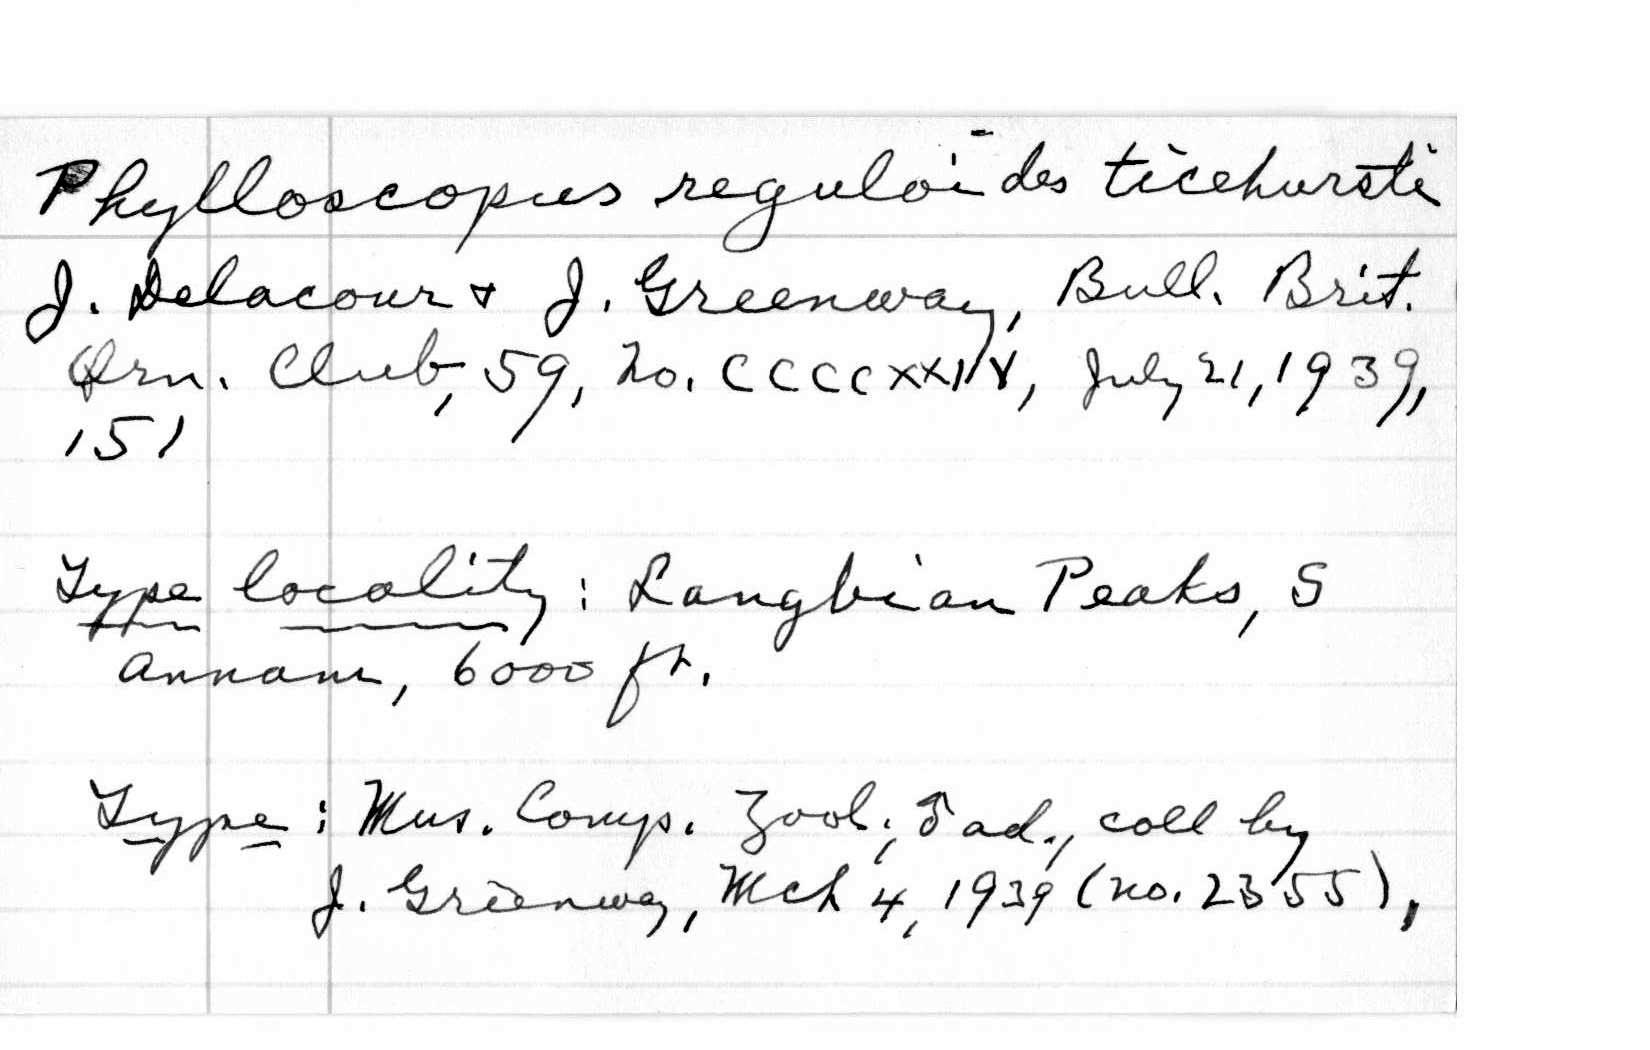 Phylloscopus reguloides ticehursti
J. Delacour & J. Greenway, Bull. Brit.
Orn. Club, 59, No. CCCCXXIV, July 21, 1939,
151
Type locality: Langbian Peaks, S
Annam, 6000 ft.
Type: Mus. Comp. Zool.; ♂ ad., coll by
J. Greenway, Mch 4, 1939 (no. 2355),